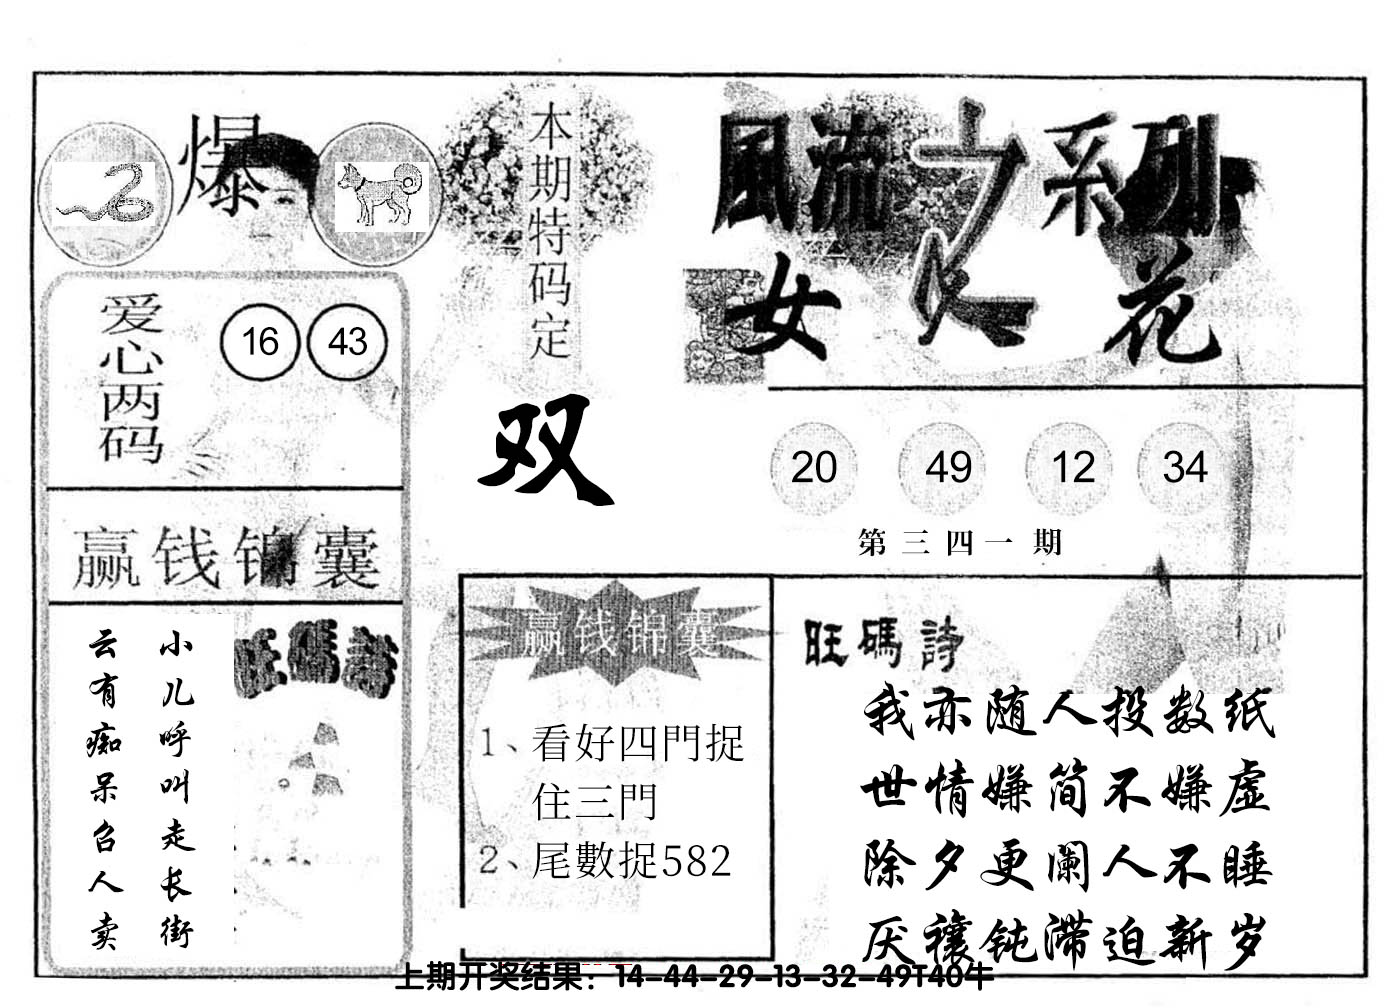 爆
本期特码定
双
風流之系列
女人花
爱心两码
16 43
20 49 12 34
第三四一期
赢钱锦囊
旺碼詩
小儿呼叫走长街
云有痴呆召人卖
赢钱锦囊
1、看好四門捉
住三門
2、尾數捉582
旺碼詩
我亦随人投数纸
世情嫌简不嫌虚
除夕更阑人不睡
厌禳钝滞迫新岁
上期开奖结果：14-44-29-13-32-49T40牛